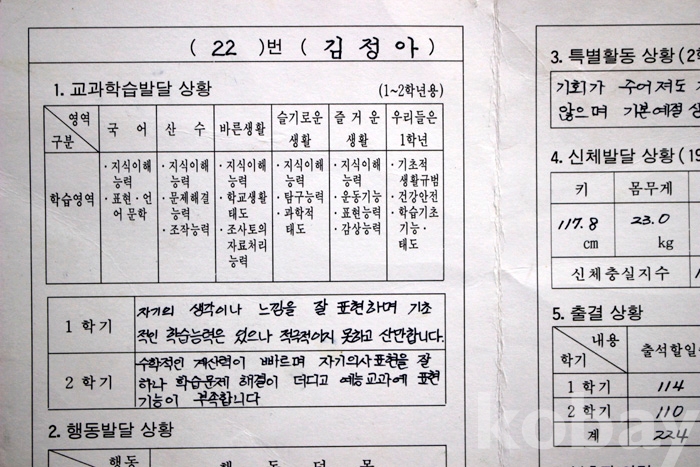 ( 22 )번 ( 김정아 )
1. 교과학습발달 상황 (1~2학년용)
영역
구분
국 어
산 수
바른생활
슬기로운 생활
즐거운 생활
우리들은 1학년
학습영역
· 지식이해 능력
· 표현·언어 문학
· 지식이해 능력
· 문제해결 능력
· 조작능력
· 지식이해 능력
· 학교생활 태도
· 조사토의 자료처리 능력
· 지식이해 능력
· 탐구능력
· 과학적 태도
· 지식이해 능력
· 운동기능
· 표현능력
· 감상능력
· 기초적 생활규범
· 건강안전
· 학습기초 기능·태도
1 학기
자기의 생각이나 느낌을 잘 표현하며 기초
적인 학습능력은 있으나 적극적이지 못하고 산만합니다.
2 학기
수학적인 계산력이 빠르며 자기의사표현을 잘
하나 학습문제 해결이 더디고 예능교과에 표현
기능이 부족합니다
2. 행동발달 상황
행동
행 동 덕 목
3. 특별활동 상황(2학
기회가 주어져도
않으며 기본예절
4. 신체발달 상황(19
키
몸무게
117.8 cm
23.0 kg
신체충실지수
5. 출결 상황
내용
학기
출석할일
1 학기
114
2 학기
110
계
224
kobay